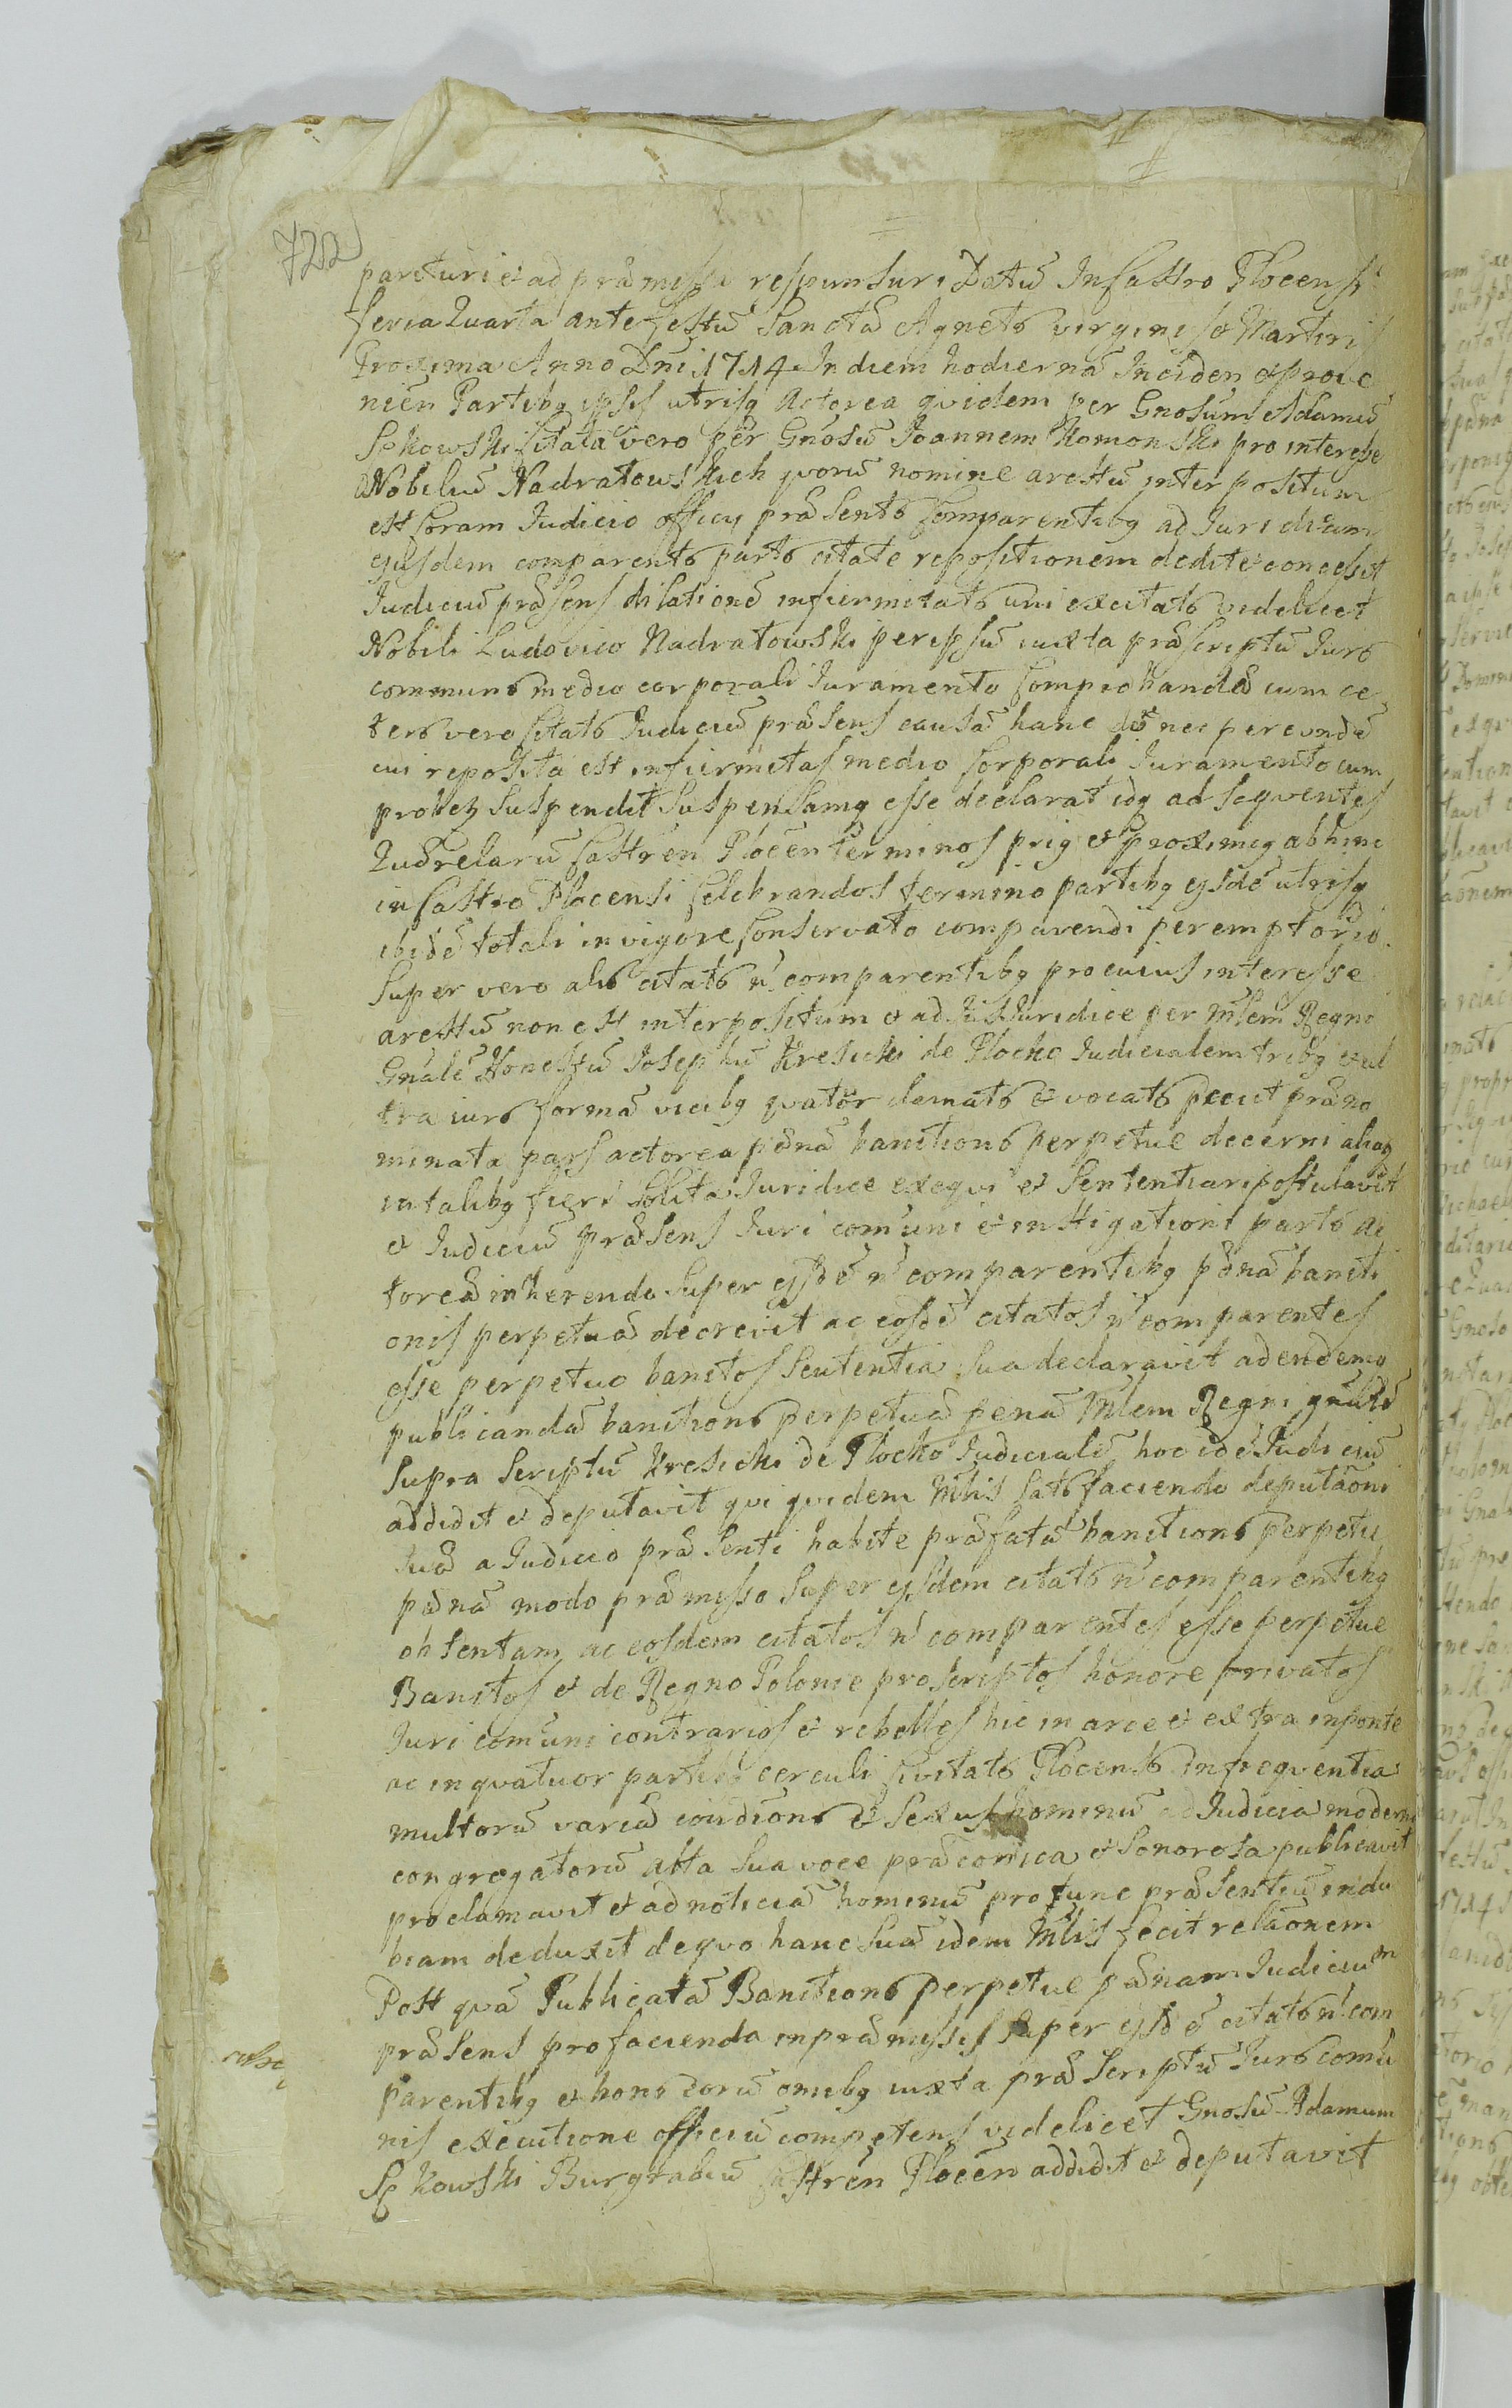 722
parituri et ad præmissa responsuri Datū In Castro Plocensi
feria Quarta ante festū Sanctæ Agnetis virginis et Martiris
Proxima Anno Dni 1714 In diem hodiernā Inciden et prove
nien Partibq ipsis utrisq Actorea quidem per Gnosum Adamū
Sękowski Citata vero per Gnosū Joannem Komonski pro interesse
Nobiliū Nadratowskich quorū nomine arestū interpositum
est Coram Judicio officij præsentis Comparentibq ad Juridicam
ejusdem comparentis partis citate repositionem dedit et concessit
Judiciū præsens dilationē infirmitatis uni ex citatis videlicet
Nobili Ludovico Nadratowski per ipsū iuxta præscriptū Juris
communis medio corporali Juramento Comprobandā cum ce
teris vero Citatis Judiciū præsens causā hanc donec per eundē
cui reposita est infirmitas medio Corporali Juramento com
probet Suspendit Suspensamq esse declarat idq ad sequentes
Querelarū Castren Plocen terminos priq et proximiq abhinc
in Castro Plocensi Celebrandos termino partibq ejsdē utrisq
ibidē totali in vigore Conservato comparendi peremptorio.
Super vero aliis citatis n̄ comparentibq pro cuius interesse
arestū non est interpositum et ad Jus Juridice per Mlem Regni
Gnalē Honestū Josephū Kresicki de Plocko Judicialem tribq et ul
tra iuris formā vicibq quatuor clamatis et vocatis petiit præno
minata pars actorea pænā banitionis perpetue decerni aliaq
in talibq fieri Solita Juridice exequi et Sententiari postulavit
et Judiciū præsens Juri comūni et instigationi partis ac
toreæ inherendo Super ejsdē n̄ comparentibq pænā baniti
onis perpetuæ decrevit ac eosdē citatos n̄ comparentes
esse perpetuo banitos Sententia Sua declaravit ad eandemq
publicandā banitionis perpetuæ penā Mlem Regni gnalē
Supra Scriptū Kresicki de Plocko Judicialē hoc idē Judiciū
addidit et deputavit qui quidem Mlis Satisfaciendo deputaōni
Suæ a Judicio præsenti habite præfatā banitionis perpetue
pænā modo præmisso Super ejsdem citatis n̄ comparentibq
obtentam ac eosdem citatos n̄ comparentes esse perpetue
Banitos et de Regno Polonie proscriptos honore privatos
Juri comūni contrarios et rebelles hic in arce et extra in ponte
ac in quatuor partibq circuli Civitatis Plocensis in frequentia
multorū variæ condiōnis et Sexus hominū ad Judicia moderna
congregatorū alta Sua voce præconica et Sonorosa publicavit
proclamavit et ad noticiā hominū pro tunc præsentiū indu
biam deduxit de quo hanc Suā idem Mlis fecit relaōnem
Post quā Publicatā Banitionis perpetue pænam Judicium
præsens pro facienda in præmissis Super ejsdē citatis n̄ com
parentibq et bonis eorū omibq iuxta præscriptū Juris comū
nis executione officiū competens videlicet Gnosū Adamum
Sękowski Burgrabiū Castren Plocen addidit et deputavit